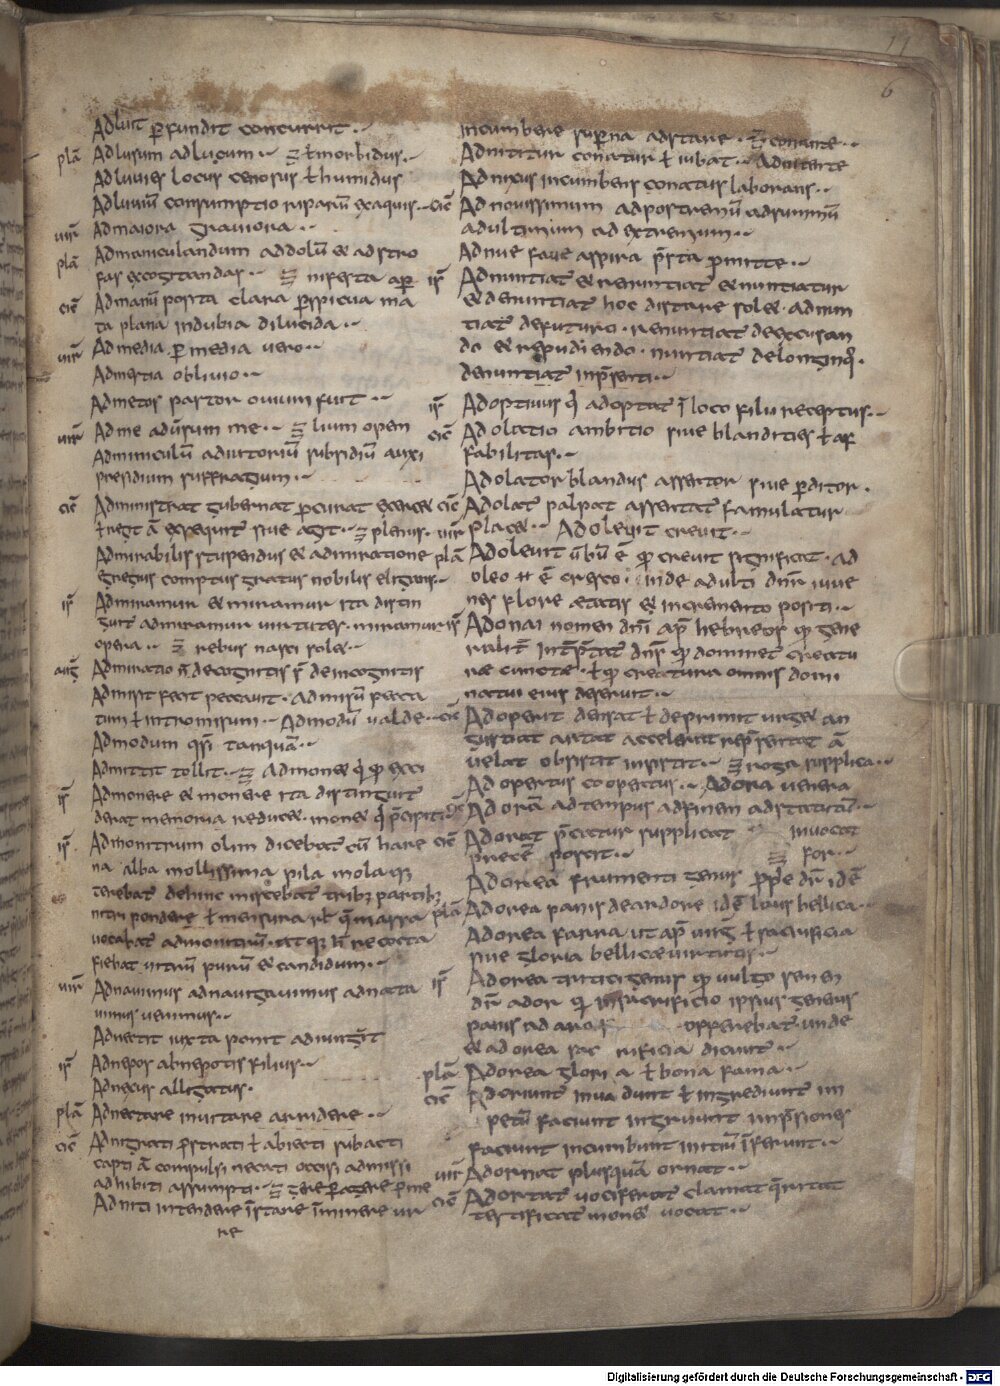 17
6
Adluit ꝑfundit concurrit
plā Adlusum adlucum · ł morbidus
Adluvies locus cenosus ł humidus
Adluuiū consumptio ripariū ex aquis
uir̄ Admaiora grauiora
plā Admaniculandum addolū et adstro
fas excogitandas · nifesta aper
cic̄ Admanū posita clara ꝑspicua ma
ta plana indubia dilucida
uir̄ Admedia ꝑ media uero
Admertia obliuio
Admetos pastor ouium fuit
uir̄ Adme aduersum me · lium opem
Adminiculū adiutoriū subsidiū auxi
presidium suffragium
cic̄ Administrat gubernat ꝑcurat exercet
ł regit ā exsequit̄ siue agit · plenus
Admirabilis stupendus et admiratione
egregius comptus gratus nobilis
is̄ Admiramur et miramur ita distin
guit̄ admiramur uirtutes · miramur
opera · rebus nasci solet
auḡ Admiratio n̄ de cognitis s; de incognitis
Admisit fecit peccauit · Admisū pecca
tum ł intromissum · Admodū ualde
Admodum q̄si tanquā
Admittit tollit · Admonet q̄
is̄ Admonere et monere ita distinguit̄
derat memoria reducet · monet q̄ p̄cipit
is̄ Admonitrum olim dicebat̄ cū hare
na alba mollissima pila molaq;
terebat̄ dehinc miscebat̄ tribꝫ partibꝫ
nitri pondere ł mensura
uocabat̄ admonitrū · recocta
fiebat uitrum purū et candidum
uir̄ Adnauimus adnauigauimus adnata
uimus uenimus
Adnectit iuxta ponit adiungit
is̄ Adnepos abnepotis filius
Adnexus alligatus
plā Adnectare inuitare arridere
cic̄ Adnigrati ꝓstrati ł abiecti subacti
capti ā compulsi necati occisi admissi
adhibiti assumpti · gere ꝑagere
Adniti intendere īstare īminere ur
re
incumbere superna adstare · conante
Adnititur conatur ł iubat · Adnitente
Adnixus incumbens conatus laborans
cic̄ Adnouissimum adpostremū adsummū
adultimum ad extremum
Adnue faue aspira p̄sta ꝓmitte
is̄ Adnuntiat̄ et renuntiat̄ et nuntiatur
et denuntiat̄ hoc distare solet · adnun
tiat̄ defuturo · renuntiat̄ deexcusan
do et repudiendo · nuntiat̄ delonginq̄ ·
denuntiat̄ inp̄senti
is̄ Adoptiuus q̄ adoptat̄ ī loco filii receptus
cic̄ Adolatio ambitio siue blandities ł af
fabilitas
Adolator blandus assertor siue ꝑditor ·
cic̄ Adolat̄ palpat assentat̄ famulatur
uir̄ placet · Adoleuit creuit
plā Adoleuit ūbū ē q̄ creuit significat · ad
oleo ē cresco · inde adulti dn̄r iuue
nes flore etatis et incremento positi
is̄ Adonai nomen dn̄i ap̄ hebreos q̄ gene
ralit̄ int̄p̄tat̄ dn̄s q̄ dominet̄ creatu
rae cunctae · ł q̄ creatura omnis domi
natui eius deseruit
cic̄ Adoperit densat ł deprimit urget an
gustiat artat accelerat rep̄sentat ā
uelat obsistit insistit · roga supplica
Adopertus coopertus · Adora uenera
Adorā adtempus adfinem
cic̄ Adorat p̄catur supplicat inuocat
precē poscit · for
Adorea frumenti genus ꝓp̄e dr̄ idē
plā Adorea panis deandore idē laus bellica
Adorea farra ut ap̄ uirḡ ł sacrificia
siue gloria bellicae uirtutis
is̄ Adorea tritici genus q̄ uulgo semen
dr̄ ador q̄ insacrificio ipsius generis
panis ad aras offerebat̄ unde
et adorea sacrificia dicunt̄
plā Adorea gloria ł bona fama
cic̄ Adoriunt̄ inuadunt ł ingrediunt̄ im
petū faciunt ingruunt inp̄siones
faciunt incumbunt initiū īferunt
uir̄ Adornat plusquā ornat
cic̄ Adortat̄ uociferat̄ clamat q̄ritat
testificat̄ monet uocat
Digitalisierung gefördert durch die Deutsche Forschungsgemeinschaft - DFG